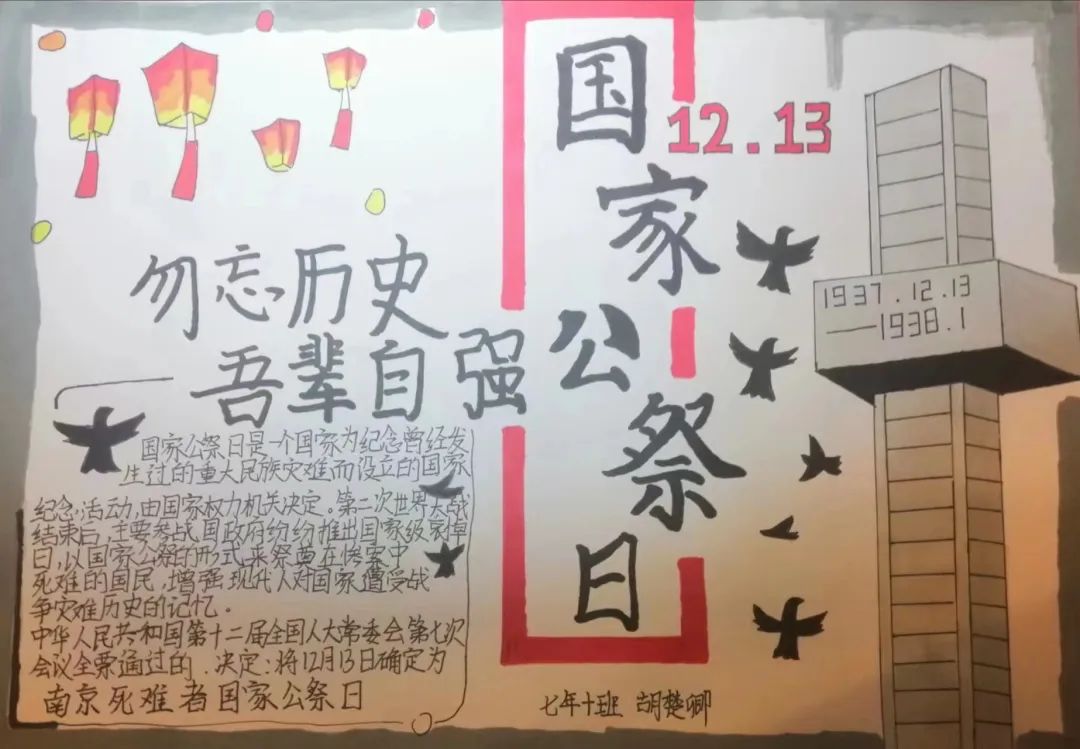 国家公祭日
12.13
勿忘历史
吾辈自强
1937.12.13
—1938.1
国家公祭日是一个国家为纪念曾经发
生过的重大民族灾难而设立的国家
纪念活动,由国家权力机关决定。第二次世界大战
结束后,主要参战国政府纷纷推出国家级哀悼
日,以国家公祭的形式来祭奠在惨案中
死难的国民,增强现代人对国家遭受战
争灾难历史的记忆。
中华人民共和国第十二届全国人大常委会第七次
会议全票通过的.决定:将12月13日确定为
南京死难者国家公祭日
七年十班 胡楚卿